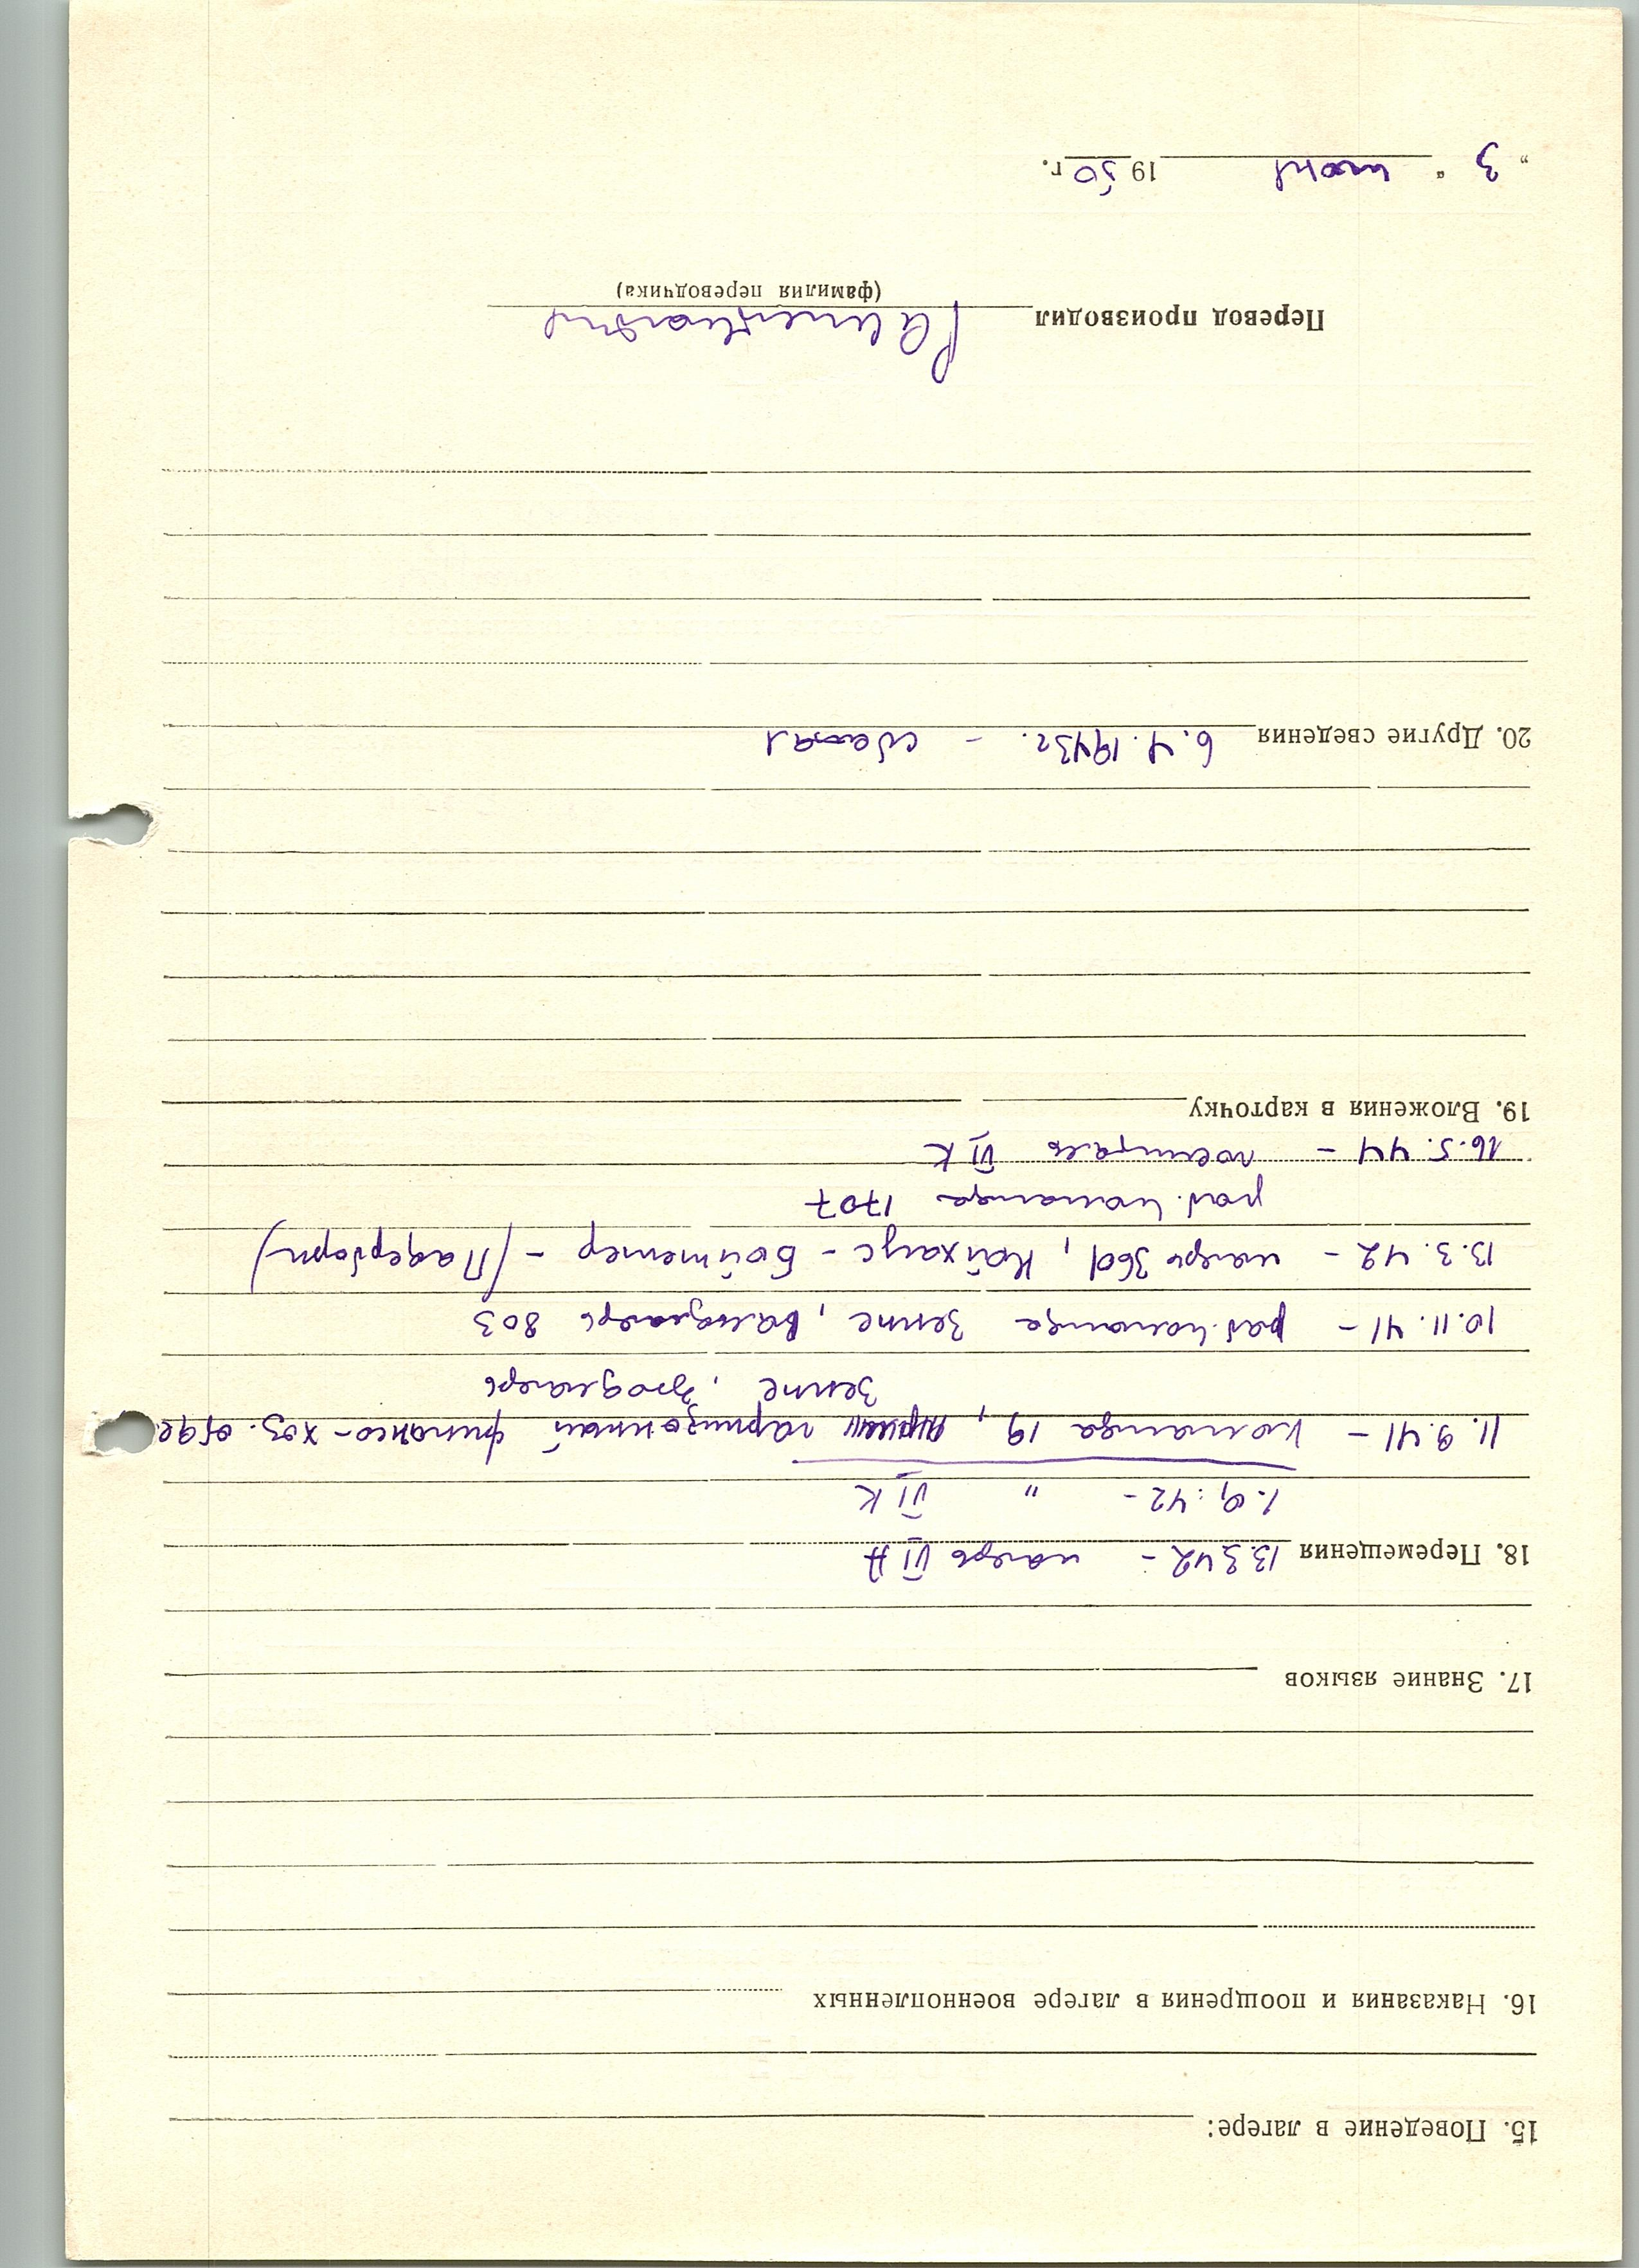 15. Поведение в лагере:
16. Наказания и поощрения в лагере военнопленных
17. Знание языков
18. Перемещения 13.3.42 - лагерь VI A
1.9.42 - " VI K
11.9.41 - команда 19, гарнизонный финансо-хоз. отде
Зенне, лагерь
10.11.41 - раб. команда Зенне, Вальдлагерь 803
13.3.42 - лагерь 360, Нойхаус - (Падерборн)
раб. команда 1707
16.5.44 - госпиталь VI K
19. Вложения в карточку
20. Другие сведения 6.4.1943г. - сбежал
Перевод производил
(фамилия переводчика)
„ 3 “ июня 1950 г.